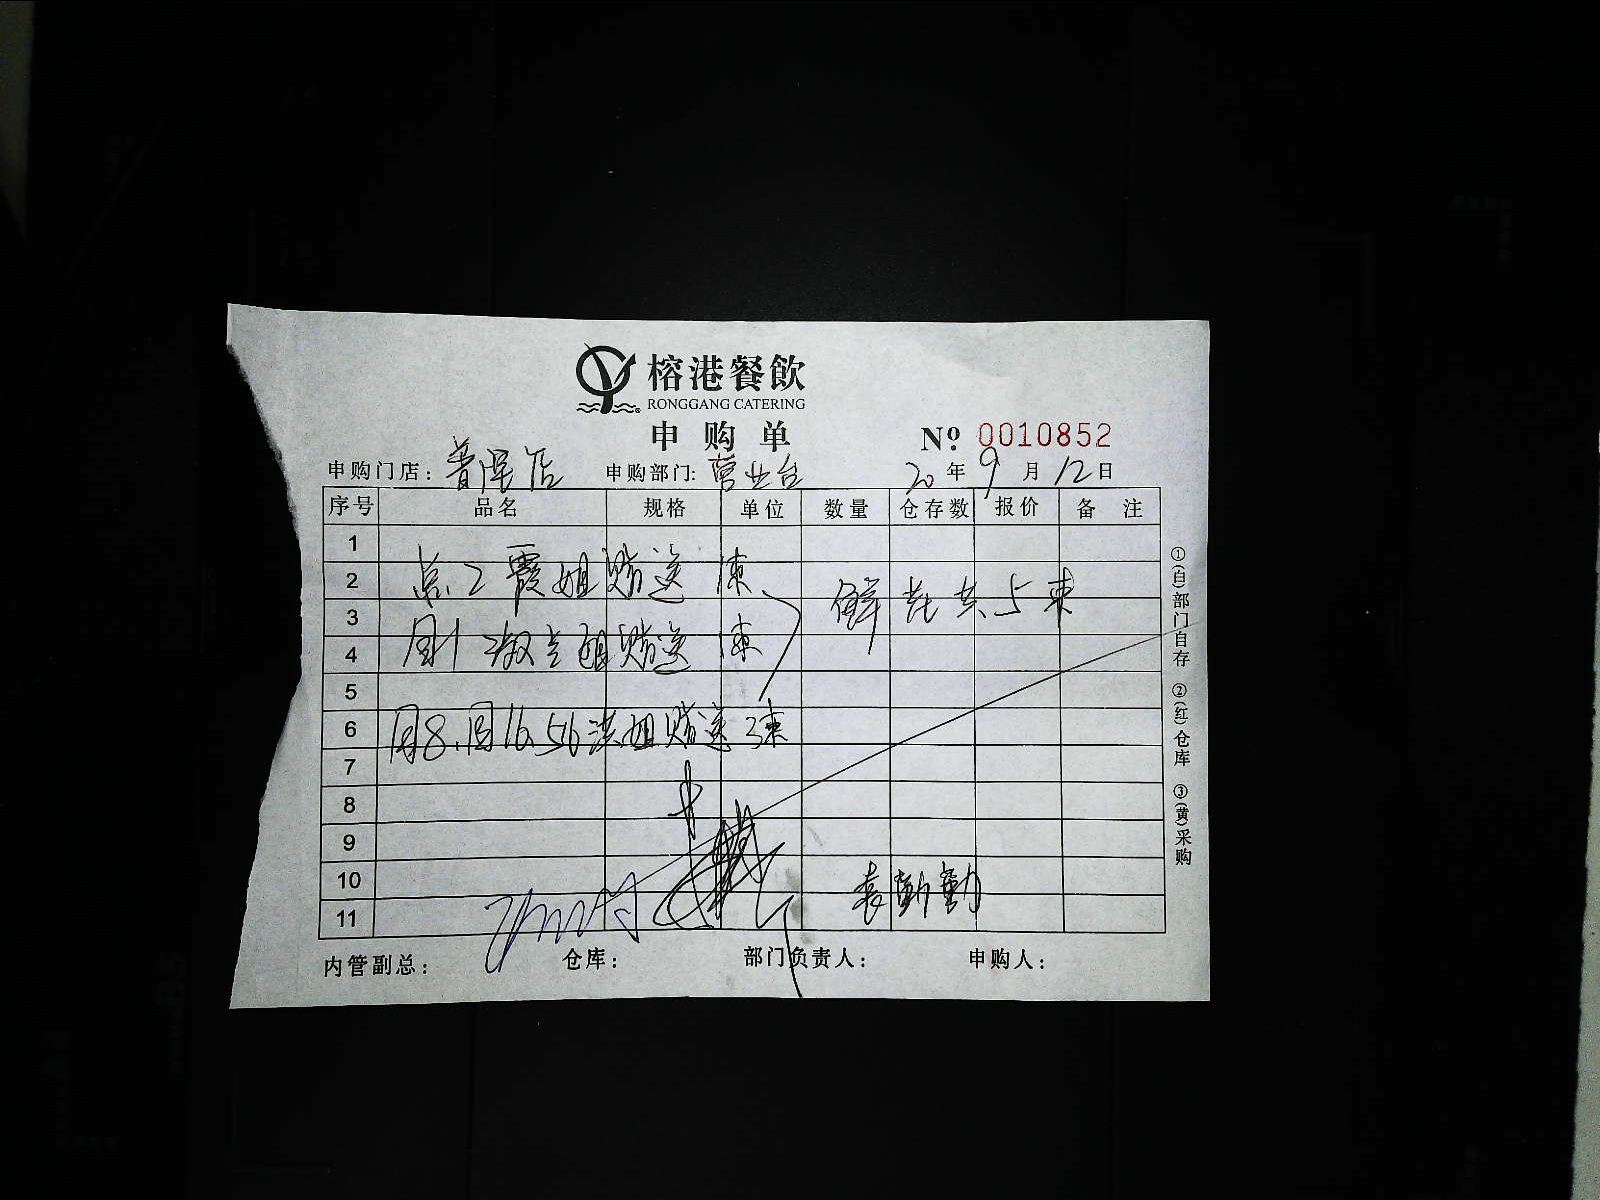 榕港餐飲
RONGGANG CATERING
申购单
№: 0010852
申购门店: 普泽店 申购部门: 营业台 20年9月12日
序号 品名 规格 单位 数量 仓存数 报价 备注
1
2 霞姐赠送1束 鲜花共5束
3
4 淑兰姐赠送1束
5
6 周8.周16.56洪姐赠送3束
7
8
9
10 袁勤勤
11
内管副总: 仓库: 部门负责人: 申购人:
①(白)部门自存 ②(红)仓库 ③(黄)采购